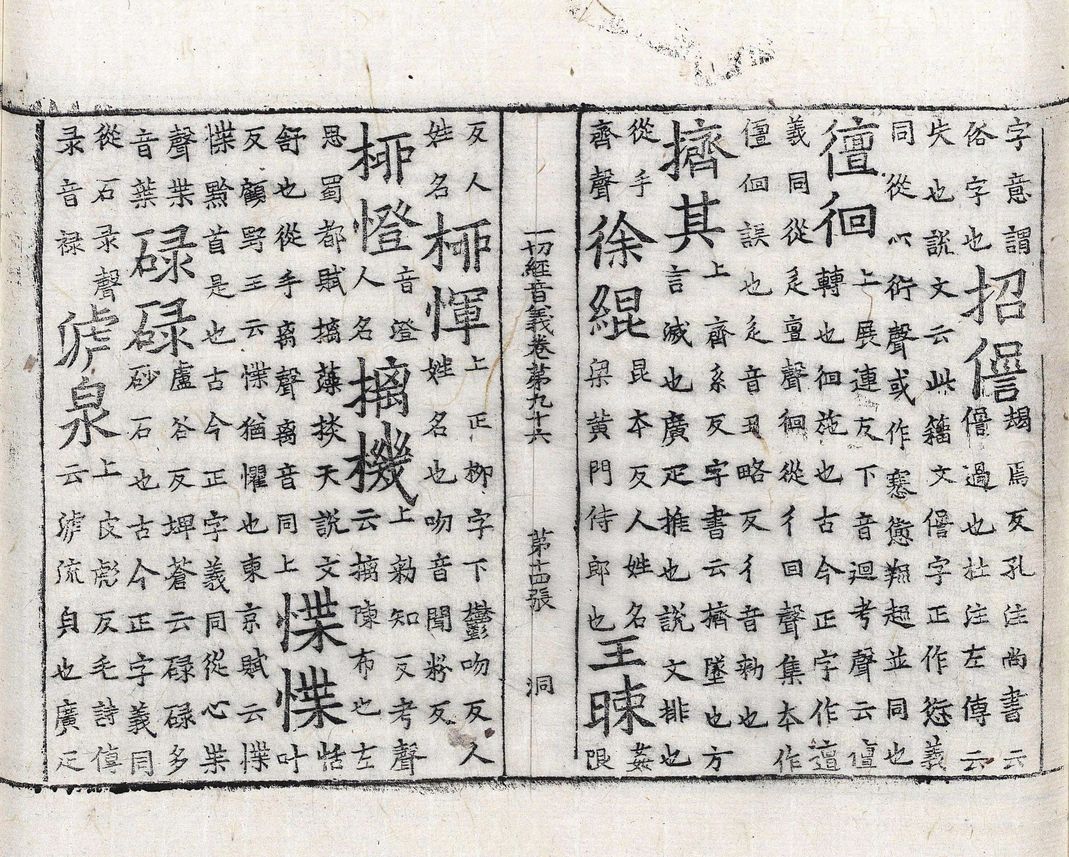 字意謂
俗字也
招𠎝
朅焉反孔注尚書云
𠎝過也杜注左傳云
失也說文云此籀文𠎝字正作愆義
同從心衍聲或作寋愆並同也
儃徊
上展連反下音迴考聲云儃
轉也徊旋也古今正字作邅
義同從辵亶聲徊從彳回聲集本作
儃佪誤也辵音丑略反彳音勑也
擠其
上齊系反字書云擠墜也方
言滅也廣疋推也說文排也
從手
齊聲
徐緄
昆本反人姓名
梁黃門侍郎也
王暕
姦
限
一切經音義卷第九十六 第十四張 洞
反人
姓名
桺惲
上正柳字下鬱吻反人
姓名也吻音聞粉反
桺憕
音澄
人名
摛機
上勑知反考聲
云摛陳布也左
思蜀都賦摛藻掞天說文
舒也從手离聲离音同上
惵惵
恬
叶
反顧野王云惵猶懼也東京賦云惵
惵黔首是也古今正字義同從心枼
聲枼
音葉
碌碌
盧谷反埤蒼云碌碌多
砂石也古今正字義同
從石彔聲
彔音祿
滮泉
上皮彪反毛詩傳
云滮流皃也廣疋